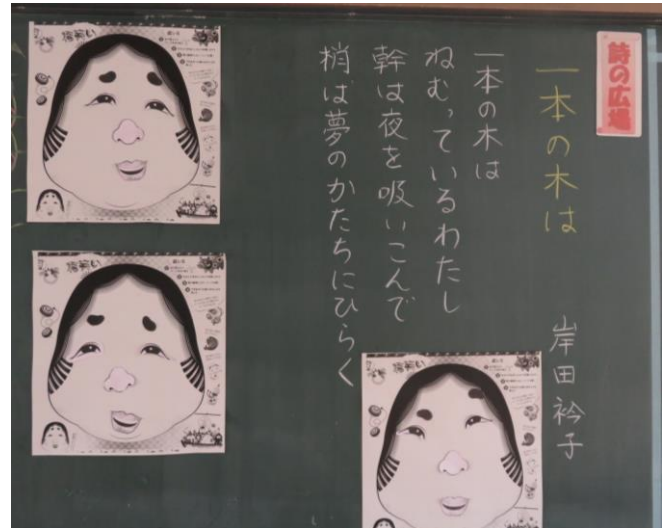 詩の広場
一本の木は
岸田衿子
一本の木は
ねむっているわたし
幹は夜を吸いこんで
梢は夢のかたちにひらく
福笑い
福笑い
福笑い